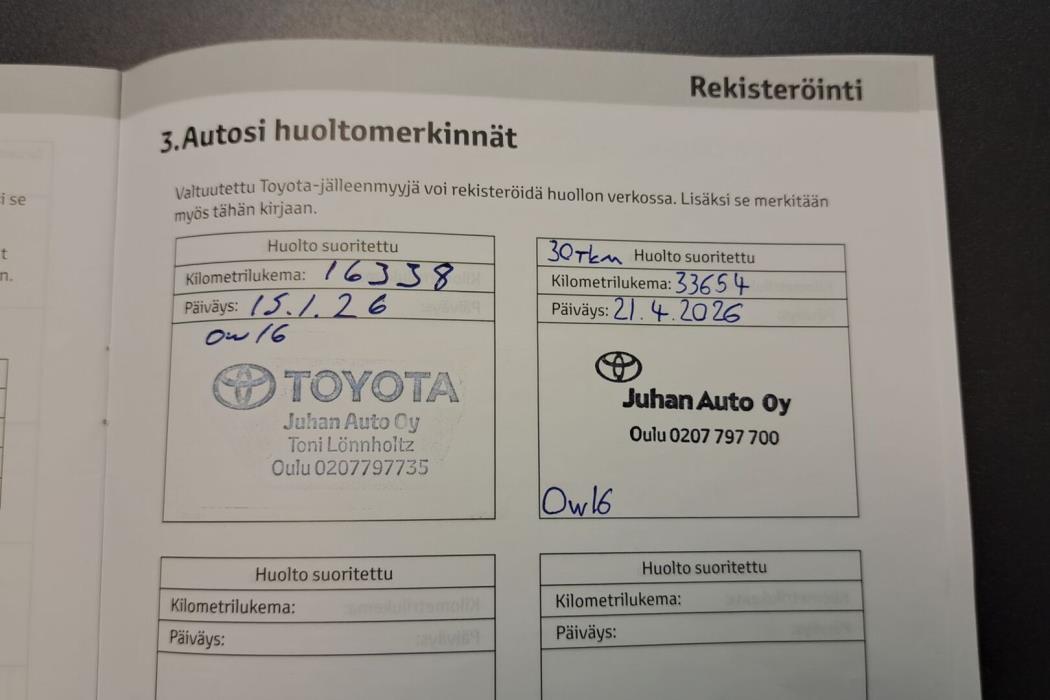 Rekisteröinti
3. Autosi huoltomerkinnät
Valtuutettu Toyota-jälleenmyyjä voi rekisteröidä huollon verkossa. Lisäksi se merkitään
myös tähän kirjaan.
Huolto suoritettu
Kilometrilukema: 16338
Päiväys: 15.1.26
0w16
TOYOTA
Juhan Auto Oy
Toni Lönnholtz
Oulu 0207797735
30Tkm Huolto suoritettu
Kilometrilukema: 33654
Päiväys: 21.4.2026
Juhan Auto Oy
Oulu 0207 797 700
0w16
Huolto suoritettu
Kilometrilukema:
Päiväys:
Huolto suoritettu
Kilometrilukema:
Päiväys:
i se
t
n.